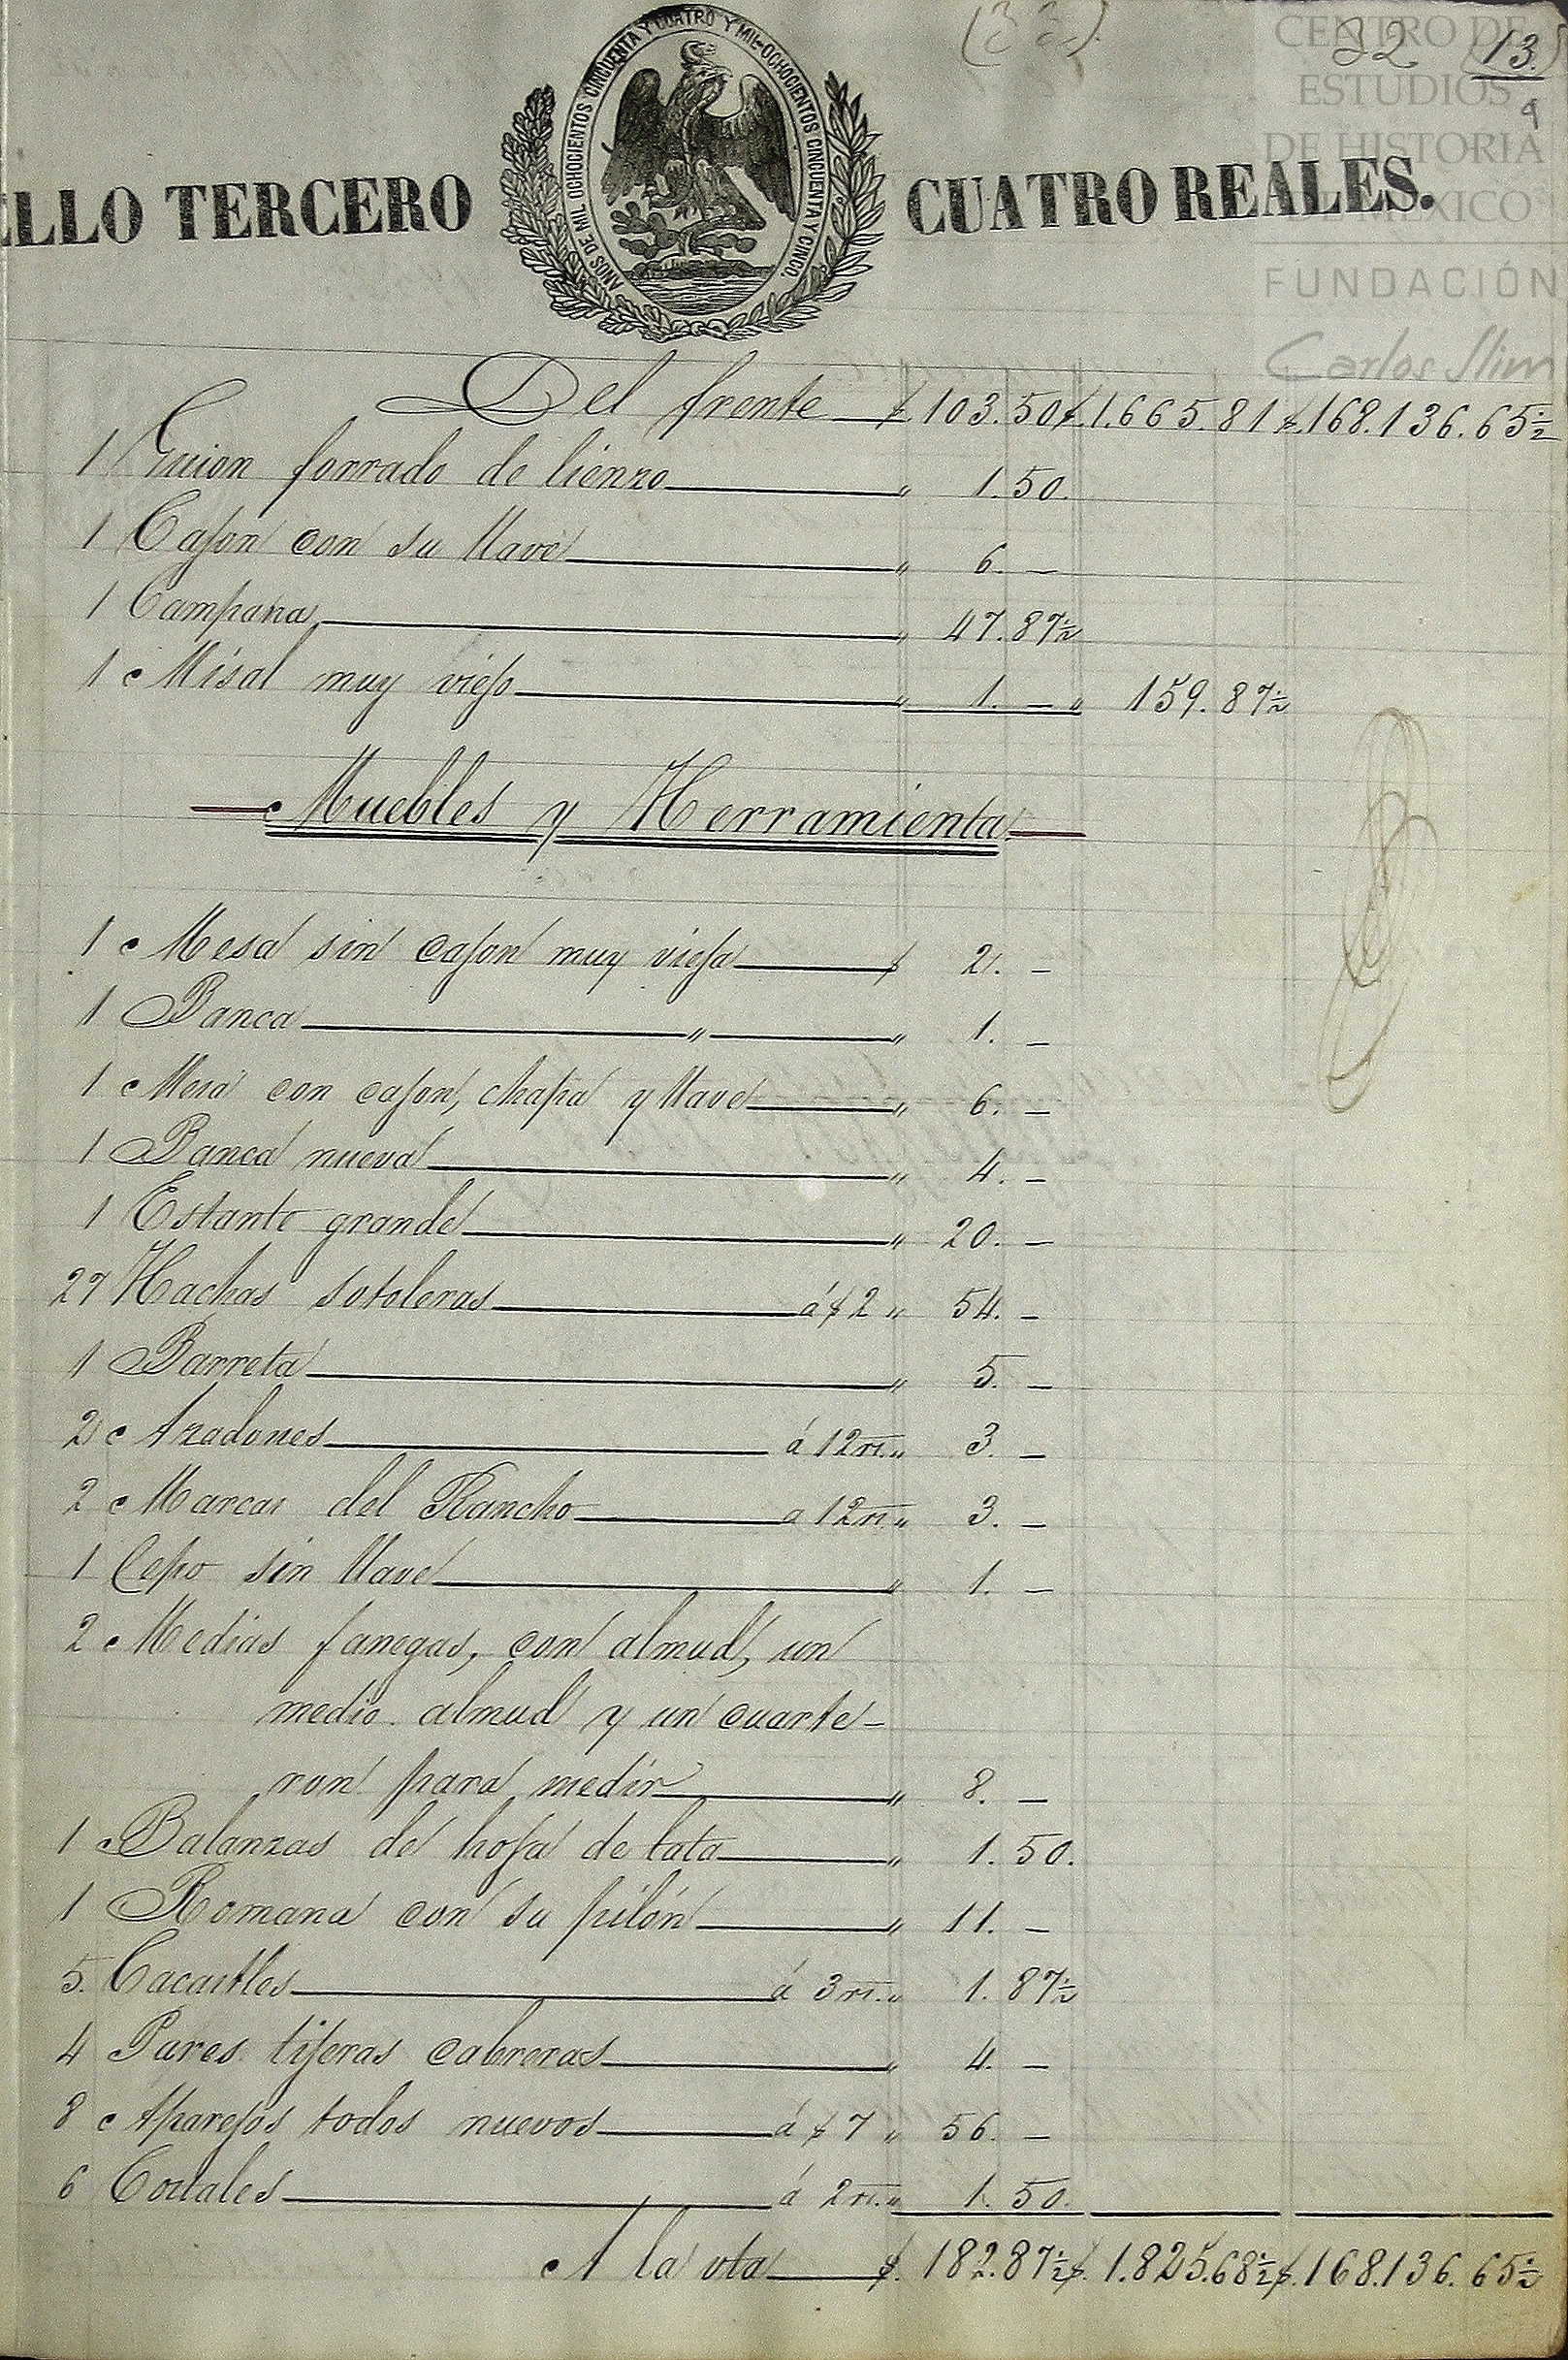 (33).
22 (13.)
9
CENTRO DE
ESTUDIOS
DE HISTORIA
DE MÉXICO
FUNDACIÓN
Carlos Slim
ELLO TERCERO CUATRO REALES.
AÑOS DE MIL OCHOCIENTOS CINCUENTA Y CUATRO Y MIL OCHOCIENTOS CINCUENTA Y CINCO.
Del frente $ 103.50 $ 1.665.81 $ 168.136.65½
1 Guion forrado de lienzo " 1.50.
1 Cajon con su llave " 6. —
1 Campana " 47.87½
1 Misal muy viejo " 1. — " 159.87½
Muebles y Herramienta
1 Mesa sin cajon muy vieja $ 2. —
1 Banca " " 1. —
1 Mesa con cajon, chapa y llave " 6. —
1 Banca nueva " 4. —
1 Estante grande " 20. —
27 Hachas sotoleras á $ 2 " 54. —
1 Barreta " 5. —
2 Azadones á 12 rs. " 3. —
2 Marcas del Rancho a 12 rs. " 3. —
1 Cepo sin llave " 1. —
2 Medias fanegas, con almud, un
medio almud y un cuarte-
ron para medir " 8. —
1 Balanzas de hoja de lata " 1.50.
1 Romana con su pilón " 11. —
5. Cacastles á 3 rs. " 1.87½
4 Pares tijeras cabreras " 4. —
8 Aparejos todos nuevos á $ 7 " 56. —
6 Costales á 2 rs. " 1.50.
A la vta $. 182.87½ $. 1.825.68½ $. 168.136.65½